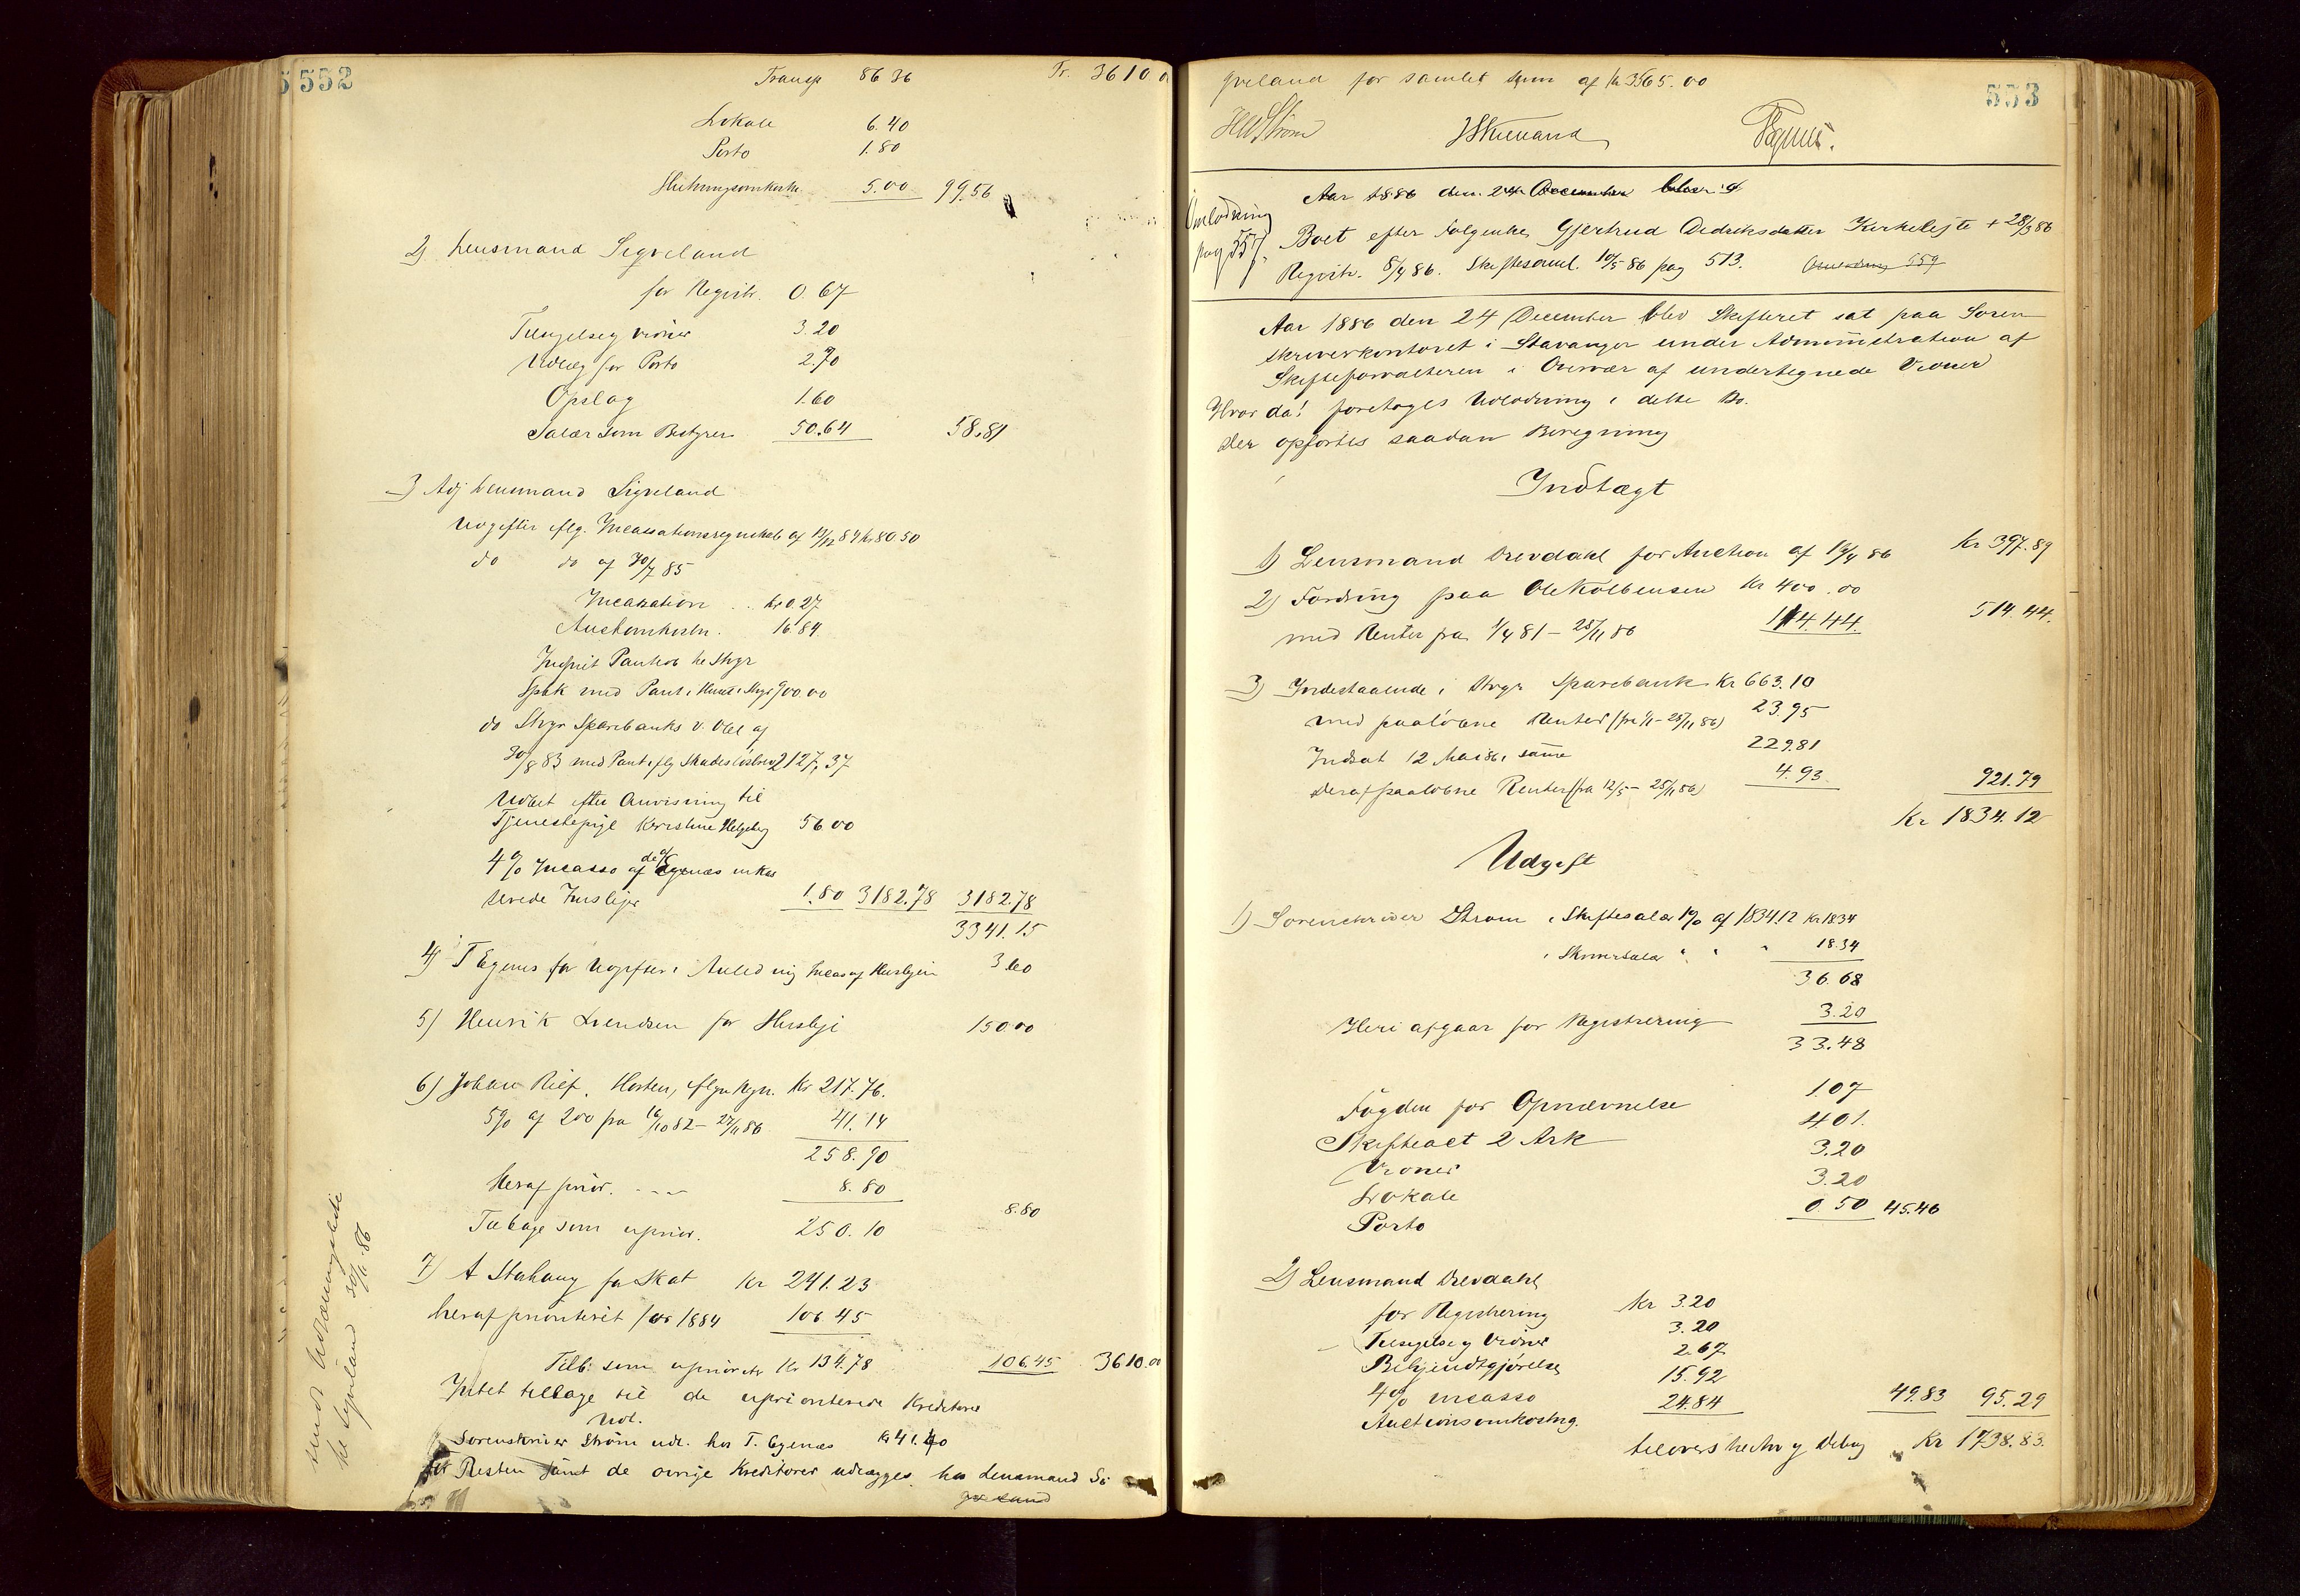 552
Transp 86 36 Tr. 3610 0
Lokale 6.40
Porto 1.80
5.00 99.56
2) Lensmand Sigveland
for Registr. 0.67
Tilsigelse og Vidner 3.20
Udlæg for Porto 2.70
Opslag 1.60
Salær som Bestyrer 50.64 58.81
3) Afg Lensmand Sigveland
Udgifter iflg. Incassationsregnskab af 13/12 84 kr 80 50
do do af 30/7 85
Incassation .. kr 0.27
Auctionskostn. 16.84
Indfriet Panteob. hos Stvgr
Spbk med Pant i Huset i Stvgr 900.00
do Stvgr Sparebanks v. Obl af
30/8 83 med Pant iflg Skadesløsbrev 2127,37
Udbet efter Anvisning til
Tjenestepige Kirstine Helgeberg 56.00
4% Incasso af de af Egenæs inkas
serede Husleje 1.80 3182.78 3182.78
3341.15
4) T Egenes for Udgifter i Anledning Incas af Huslejen 3.60
5) Henrik Svendsen for Husleje 150.00
6) Johan Rief. Horten, iflg Regn. Kr 217.76.
5% af 200 fra 16/10 82 - 27/11 86 41.14
258.90
Heraf prior. - - - 8.80 8.80
Tilbage som uprior. 250.10
7) A Stahaug for Skat Kr 241.23
heraf prioriteret for 1884 106.45
Tilb: som uprioritr Kr 134.78 106.45 3610.00
Intet tilbage til de uprioriterede Kreditorer
Udl.
Sorenskriver Strøm udl. hos T. Egenæs Kr 41.40
Resten samt de øvrige Kreditorer udlægges hos Lensmand Si
gveland
sendt Udlodningsliste
til Sigveland 30/11 86
553
gveland for samlet sum af Kr 3565.00
HW Strøm
TEgenes.
Aar 1886 den 24 December blev d
Omlodning
pag 557.
Boet efter Folgenke Gjertrud Didriksdatter Kirkelejte + 28/3 86
Registr. 8/4 86. Skiftesaml. 10/5 86 pag 513. Omlodning 559
Aar 1886 den 24 December blev Skifteret sat paa Soren
skriverkontoret i Stavanger under Administration af
Skifteforvalteren i Overvær af undertegnede Vidner
Hvor da! foretoges Udlodning i dette Bo.
Der opførtes saadan Beregning
Indtægt
1) Lensmand Drevdahl for Auction af 19/4 86 Kr 397.89
2) Fordring paa Ole Kolbensen Kr 400.00
med Renter fra 1/4 81 - 28/11 86 114.44. 514.44.
3) Indestaaende i Stvgr Sparebank Kr 663.10
med paaløbne Renter (fra 1/1 - 28/11 86) 23.95
Indsat 12 Mai 86 i samme 229.81
deraf paaløbne Renter (fra 12/5 - 28/11 86) 4.93. 921.79
Kr 1834.12
Udgift
1) Sorenskriver Strøm i Skiftesalær 1% af 1834.12 Kr 18.34
i Skriversalær " " " 18.34
36.68
Heri afgaar for Registrering 3.20
33.48
Fogden for Opnævnelse 1.07
Skifteact 2 Ark 4.01.
Vidner 3.20
Lokale 3.20
Porto 0.50 45.46
2) Lensmand Drevdahl
for Registrering Kr 3.20
Tilsigelse og Vidner 3.20
Bekjendtgjørelse 2.67
4% incasso 15.92
Auctionsomkostng. 24.84 49.83 95.29
tilovers her til Deling Kr 1738.83.